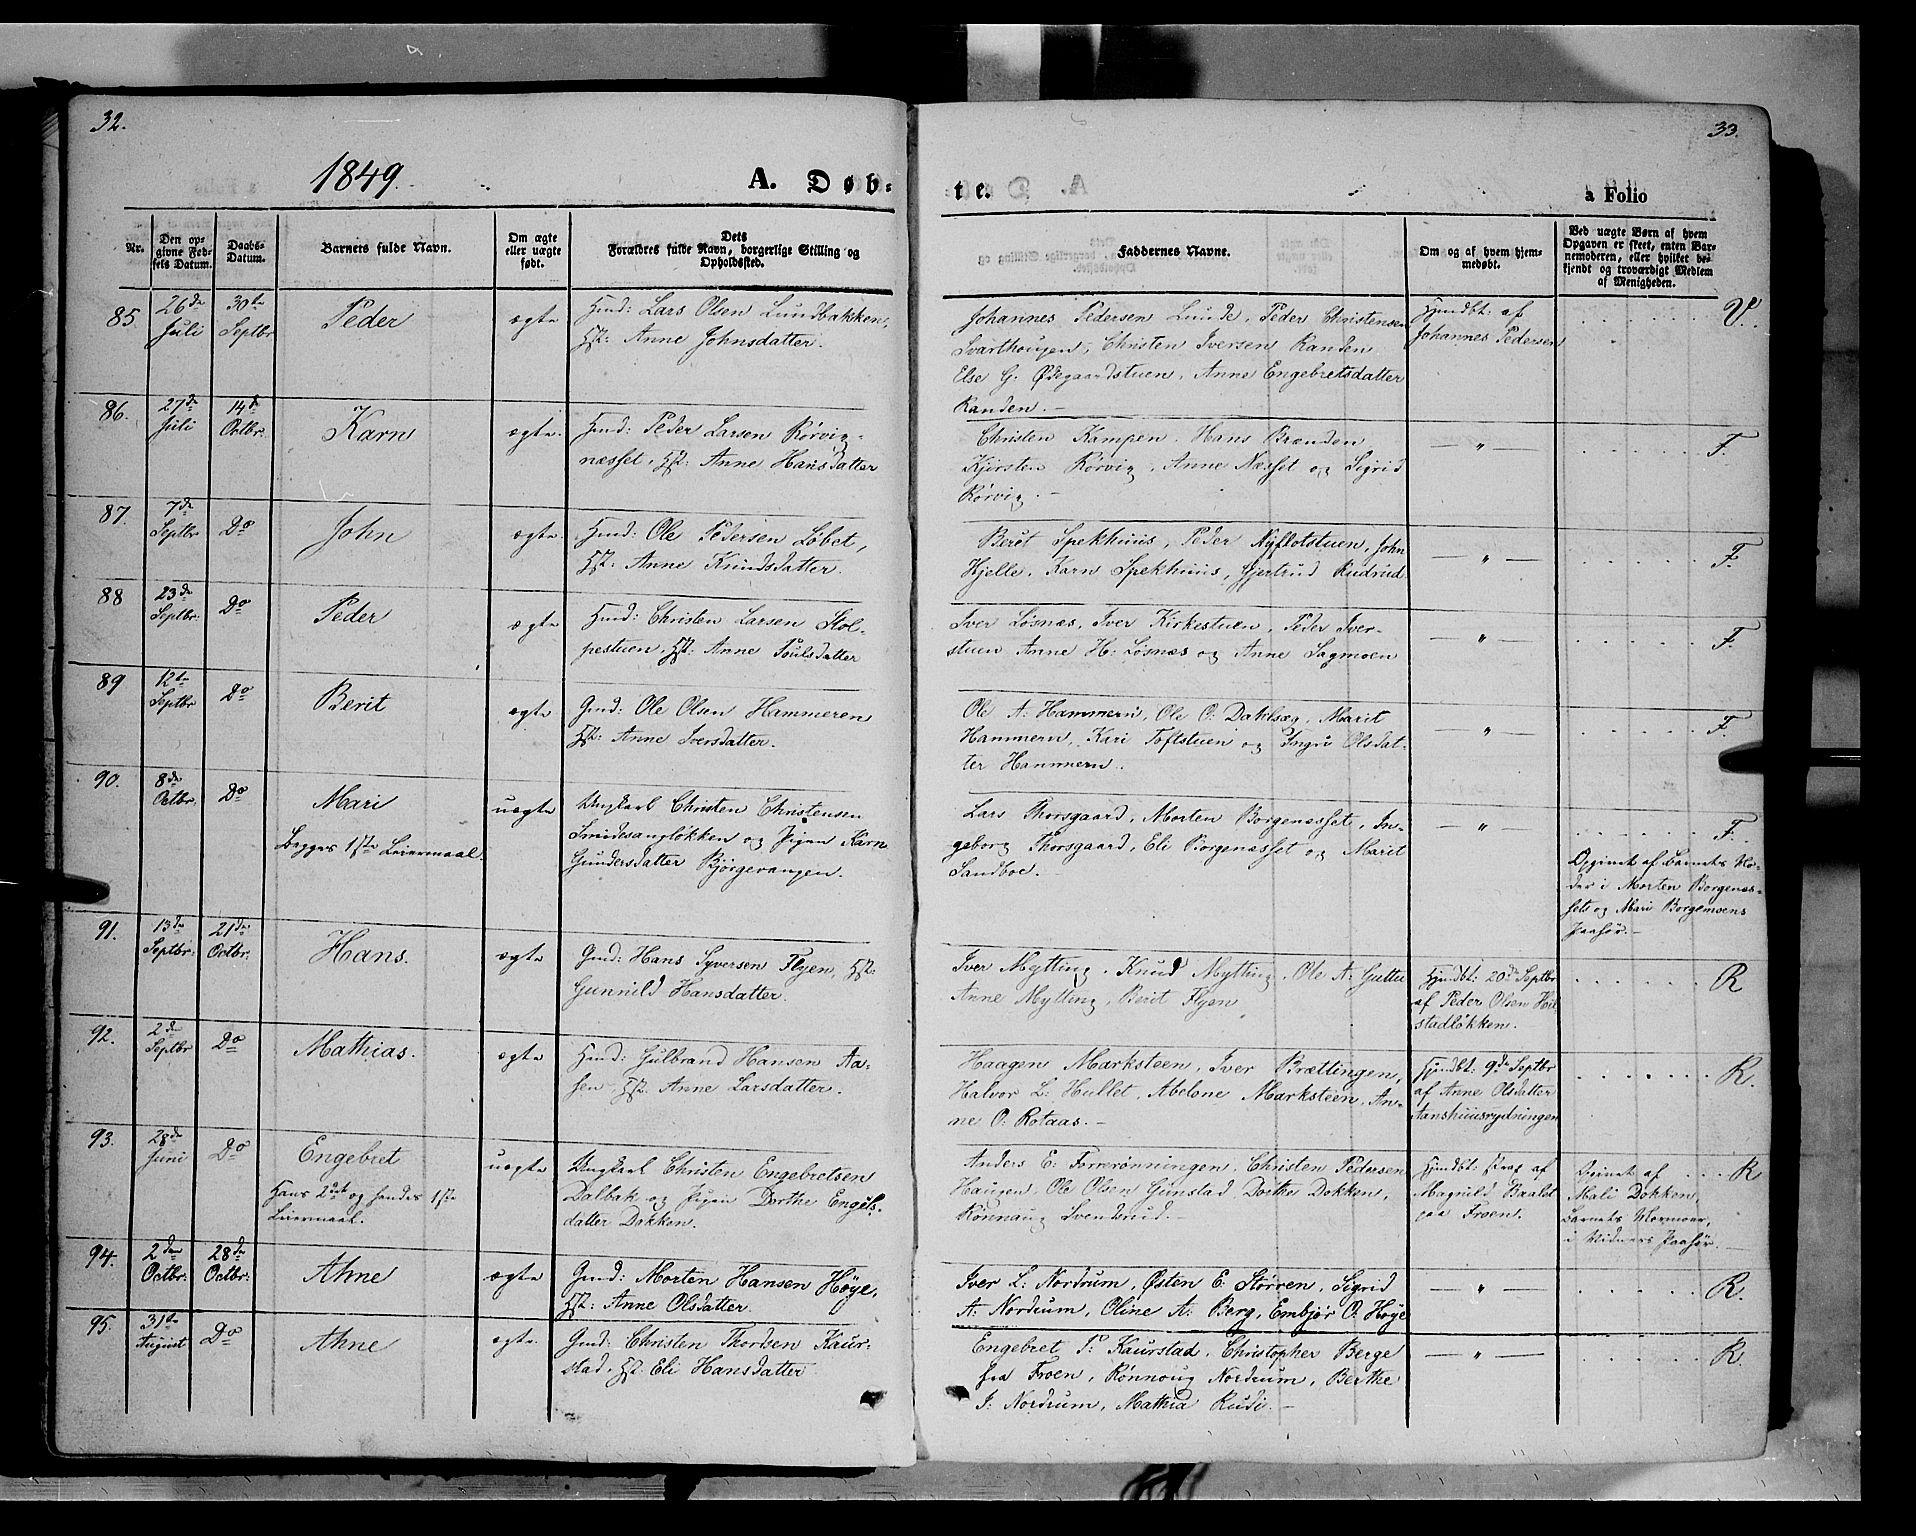 32.
33.
1849.
A. Døb-
te.
a Folio
Nr.
Den op-
givne Fød-
sels Datum.
Daabs-
Datum.
Barnets fulde Navn.
Om ægte
eller uægte
født.
Dets
Forældres fulde Navn, borgerlige Stilling og
Opholdssted.
Faddernes Navne.
Om og af hvem hjem-
medøbt.
Ved uægte Børn af hvem
Opgaven er skeet, enten Bar-
nemoderen, eller hvilket be-
kjendt og troværdigt Medlem
af Menigheden.
85
26de
Juli
30te
Septbr
Peder
ægte
Hmd: Lars Olsen Lundbakken,
Hst: Anne Johnsdatter.
Johannes Pedersen Lunde, Peder Christensen
Svarthougen, Christen Iversen Randen
Else G. Ødegaardstuen, Anne Engebretsdatter
Randen.
Hjmdbt: af
Johannes Pedersen
V.
86.
27de
Juli
14de
Octbr:
Karn
ægte.
Hmd: Peder Larsen Rørvig-
næsset, Hst: Anne Hansdatter
Christen Kampen. Hans Brænden
Kjersten Rørvig, Anne Næsset og Sigrid
Rørvig.
— " —
F.
87.
7de
Septbr
Do
John
ægte.
Hmd: Ole Pedersen Løbet,
Hst: Anne Knudsdatter.
Berit Spekhuus, Peder Nyflotstuen, John
Hjelle, Karn Spekhuus, Gjertrud Rudrud
— " —
F.
88
23de
Septbr:
Do
Peder
ægte
Hmd: Christen Larsen Stol-
pestuen, Hst: Anne Poulsdatter
Iver Løsnæs, Iver Kirkestuen, Peder Iver-
stuen Anne H: Løsnæs og Anne Sagmoen
— " —
F.
89
12te
Septbr
Do
Berit
ægte
Gmd: Ole Olsen Hammeren
Hst: Anne Iversdatter.
Ole A: Hammern, Ole O: Dahlsæg, Marit
Hammern, Kari Toftstuen og Ingri Olsdat-
ter Hammern.
— " —
F.
90.
8de
Octbr:
Do
Mari
Begges 1ste Leiermaal.
uægte
Ungkarl Christen Christensen
Smidesangløkken og Pigen Karn
Gundersdatter Bjørgevangen.
Lars Thorsgaard, Morten Borgenæsset, In-
geborg Thorsgaard, Eli Borgenæsset og Marit
Sandboe.
— " —
F.
Opgivet af Barnets Mo-
der i Morten Borgenæs-
sets og Mari Borgemoens
Paahør.
91.
13de
Septbr:
21de
Octbr:
Hans.
ægte
Gmd: Hans Syversen Flyen, Hst:
Gunnild Hansdatter.
Iver Mytting, Knud Mytting, Ole A. Guttu
Anne Mytting, Berit Flyen
Hjmdbt: 20de Septbr
af Peder Olsen Hul-
stadløkken.
R
92.
2den
Septbr
Do
Mathias.
ægte
Hmd: Gulbrand Hansen Aa-
sen Hst. Anne Larsdatter.
Haagen Marksteen, Iver Brættingen,
Halvor L: Hullet, Abelone Marksteen, An-
ne O: Rotaas.
Hjmdbt: 9de Septbr
af Anne Olsdatter
Aanshuusrydningen
R.
93.
28de
Juni
Do
Engebret
Hans 2det og hendes 1ste
Leiermaal.
uægte
Ungkarl Christen Engebretsen
Dalbak og Pigen Dorthe Engels-
datter Dokken.
Anders E: Forrerønningen, Christen Pedersen
Haugen, Ole Olsen Gunstad, Dorthe Dokken,
Rønnaug Svendsrud.
Hjmdbt: strax af
Magnild Baalst
paa Froen.
Opgivet af
Mali Dokken,
Barnets Mormoer,
i Vidners Paahør.
R
94.
2den
Octbr:
28de
Octbr:
Ahne
ægte
Gmd: Morten Hansen Høye,
Hst: Anne Olsdatter.
Iver L: Nordrum, Østen E: Storren, Sigrid
A: Nordrum, Oline A: Berg, Embjør O. Høye
— " —
R.
95.
31te
August
Do
Ahne
ægte.
Gmd: Christen Thordsen Kaur-
stad, Hst Eli Hansdatter
Engebret P: Kaurstad, Christopher Berge
fra Froen, Rønnoug Nordrum, Berthe
I: Nordrum, Mathia Rudi.
— " —
R.